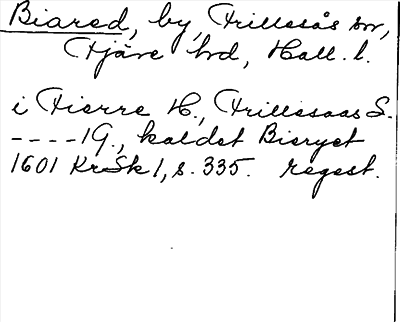 Biared, by, Frillesås sn,
Fjäre hd, Hall. l.
i Fierre H., Frillesaas S.
----1G., kaldet Bieryet
1601 KrSk 1, s. 335. regest.